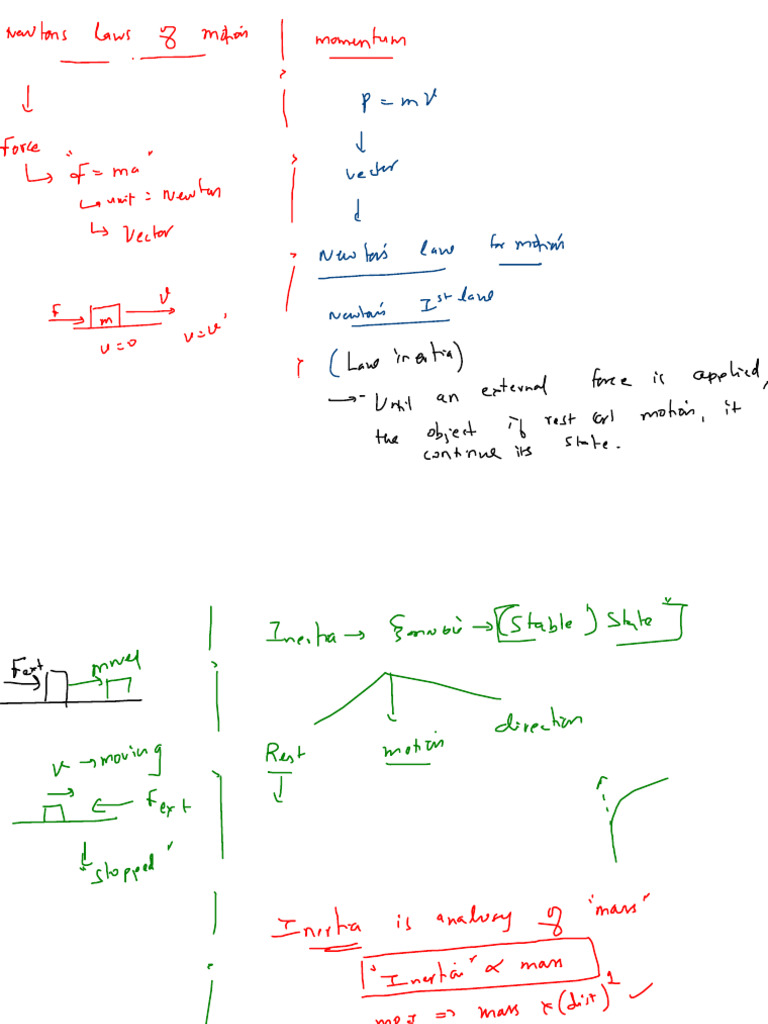 Newtons Laws of motion
Force
"F = ma"
unit = Newton
Vector
F
m
v
u=0
v=v'
momentum
P = mv
vector
Newton's law for motion
Newton's Ist law
(Law inertia)
Until an external force is applied,
the object if rest or motion, it
continue its state.
Fext
moved
v → moving
Fext
stopped
Inertia → → [(Stable) State"]
Rest
motion
direction
Inertia is analogy of "mass"
"Inertia" ∝ mass
=> mass x (dist)